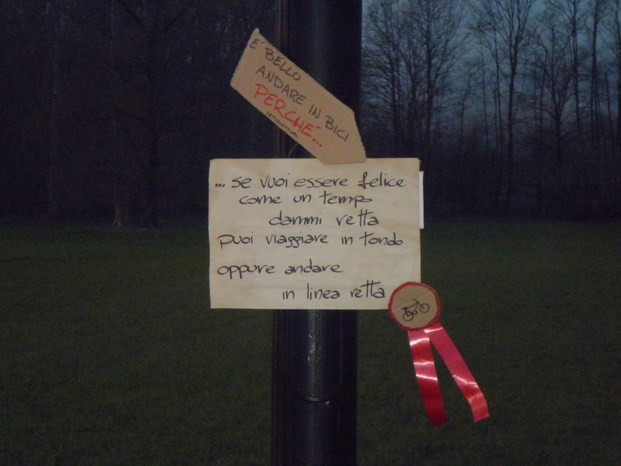 E' BELLO
ANDARE IN BICI
PERCHE'...
... se vuoi essere felice
come un tempo
dammi retta
puoi viaggiare in tondo
oppure andare
in linea retta